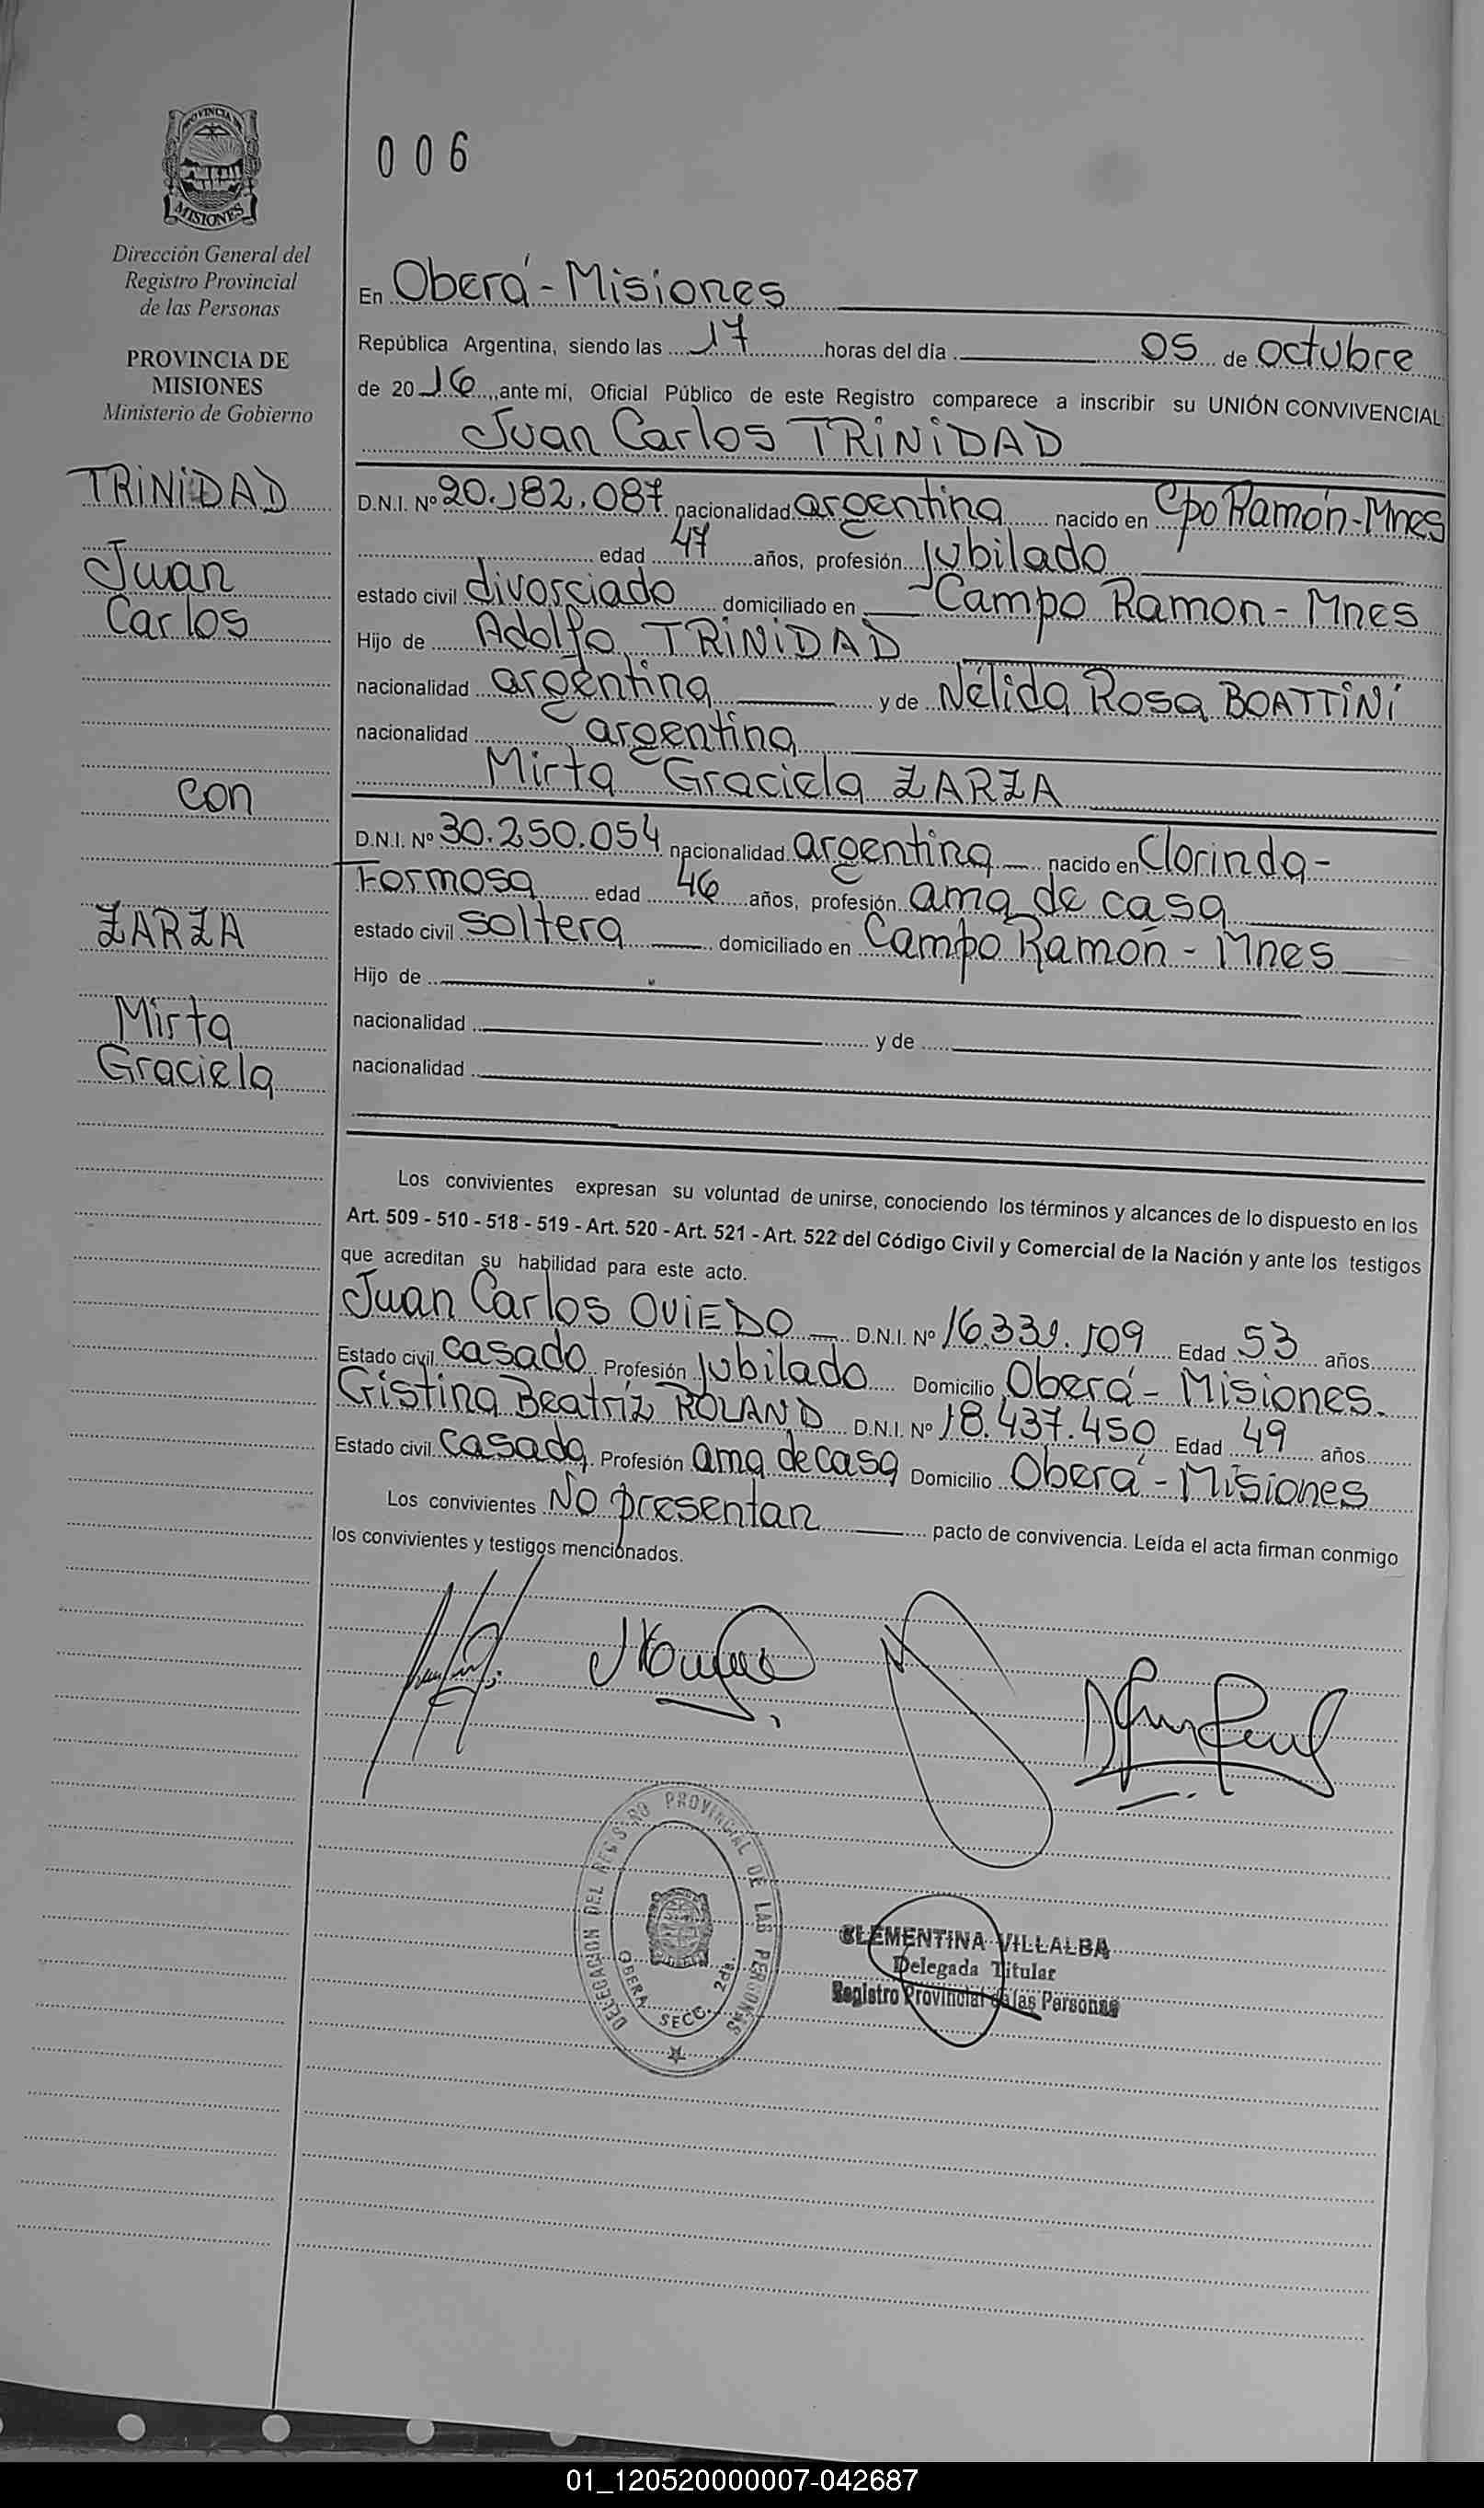 PROVINCIA DE
MISIONES
Dirección General del
Registro Provincial
de las Personas
PROVINCIA DE
MISIONES
Ministerio de Gobierno
TRINIDAD
Juan
Carlos
con
ZARZA
Mirta
Graciela
006
En Oberá - Misiones
República Argentina, siendo las 17 horas del día 05 de octubre
de 2016, ante mí, Oficial Público de este Registro comparece a inscribir su UNIÓN CONVIVENCIAL:
Juan Carlos TRINIDAD
D.N.I. Nº 20.182.087 nacionalidad argentina nacido en Cpo Ramón-Mnes
edad 47 años, profesión jubilado
estado civil divorsciado domiciliado en Campo Ramon - Mnes
Hijo de Adolfo TRINIDAD
nacionalidad argentina y de Nélida Rosa BOATTINI
nacionalidad argentina
Mirta Graciela ZARZA
D.N.I. Nº 30.250.054 nacionalidad argentina nacido en Clorinda -
Formosa edad 46 años, profesión ama de casa
estado civil soltera domiciliado en Campo Ramón - Mnes
Hijo de
nacionalidad y de
nacionalidad
Los convivientes expresan su voluntad de unirse, conociendo los términos y alcances de lo dispuesto en los
Art. 509 - 510 - 518 - 519 - Art. 520 - Art. 521 - Art. 522 del Código Civil y Comercial de la Nación y ante los testigos
que acreditan su habilidad para este acto.
Juan Carlos OVIEDO D.N.I. Nº 16.339.109 Edad 53 años
Estado civil casado Profesión jubilado Domicilio Oberá - Misiones.
Cristina Beatríz ROLAND D.N.I. Nº 18.437.450 Edad 49 años
Estado civil casada Profesión ama de casa Domicilio Oberá - Misiones
Los convivientes No presentan pacto de convivencia. Leída el acta firman conmigo
los convivientes y testigos mencionados.
DELEGACION DEL REGISTRO PROVINCIAL DE LAS PERSONAS
OBERA SECC. 2da.
CLEMENTINA VILLALBA
Delegada Titular
Registro Provincial de las Personas
01_120520000007-042687